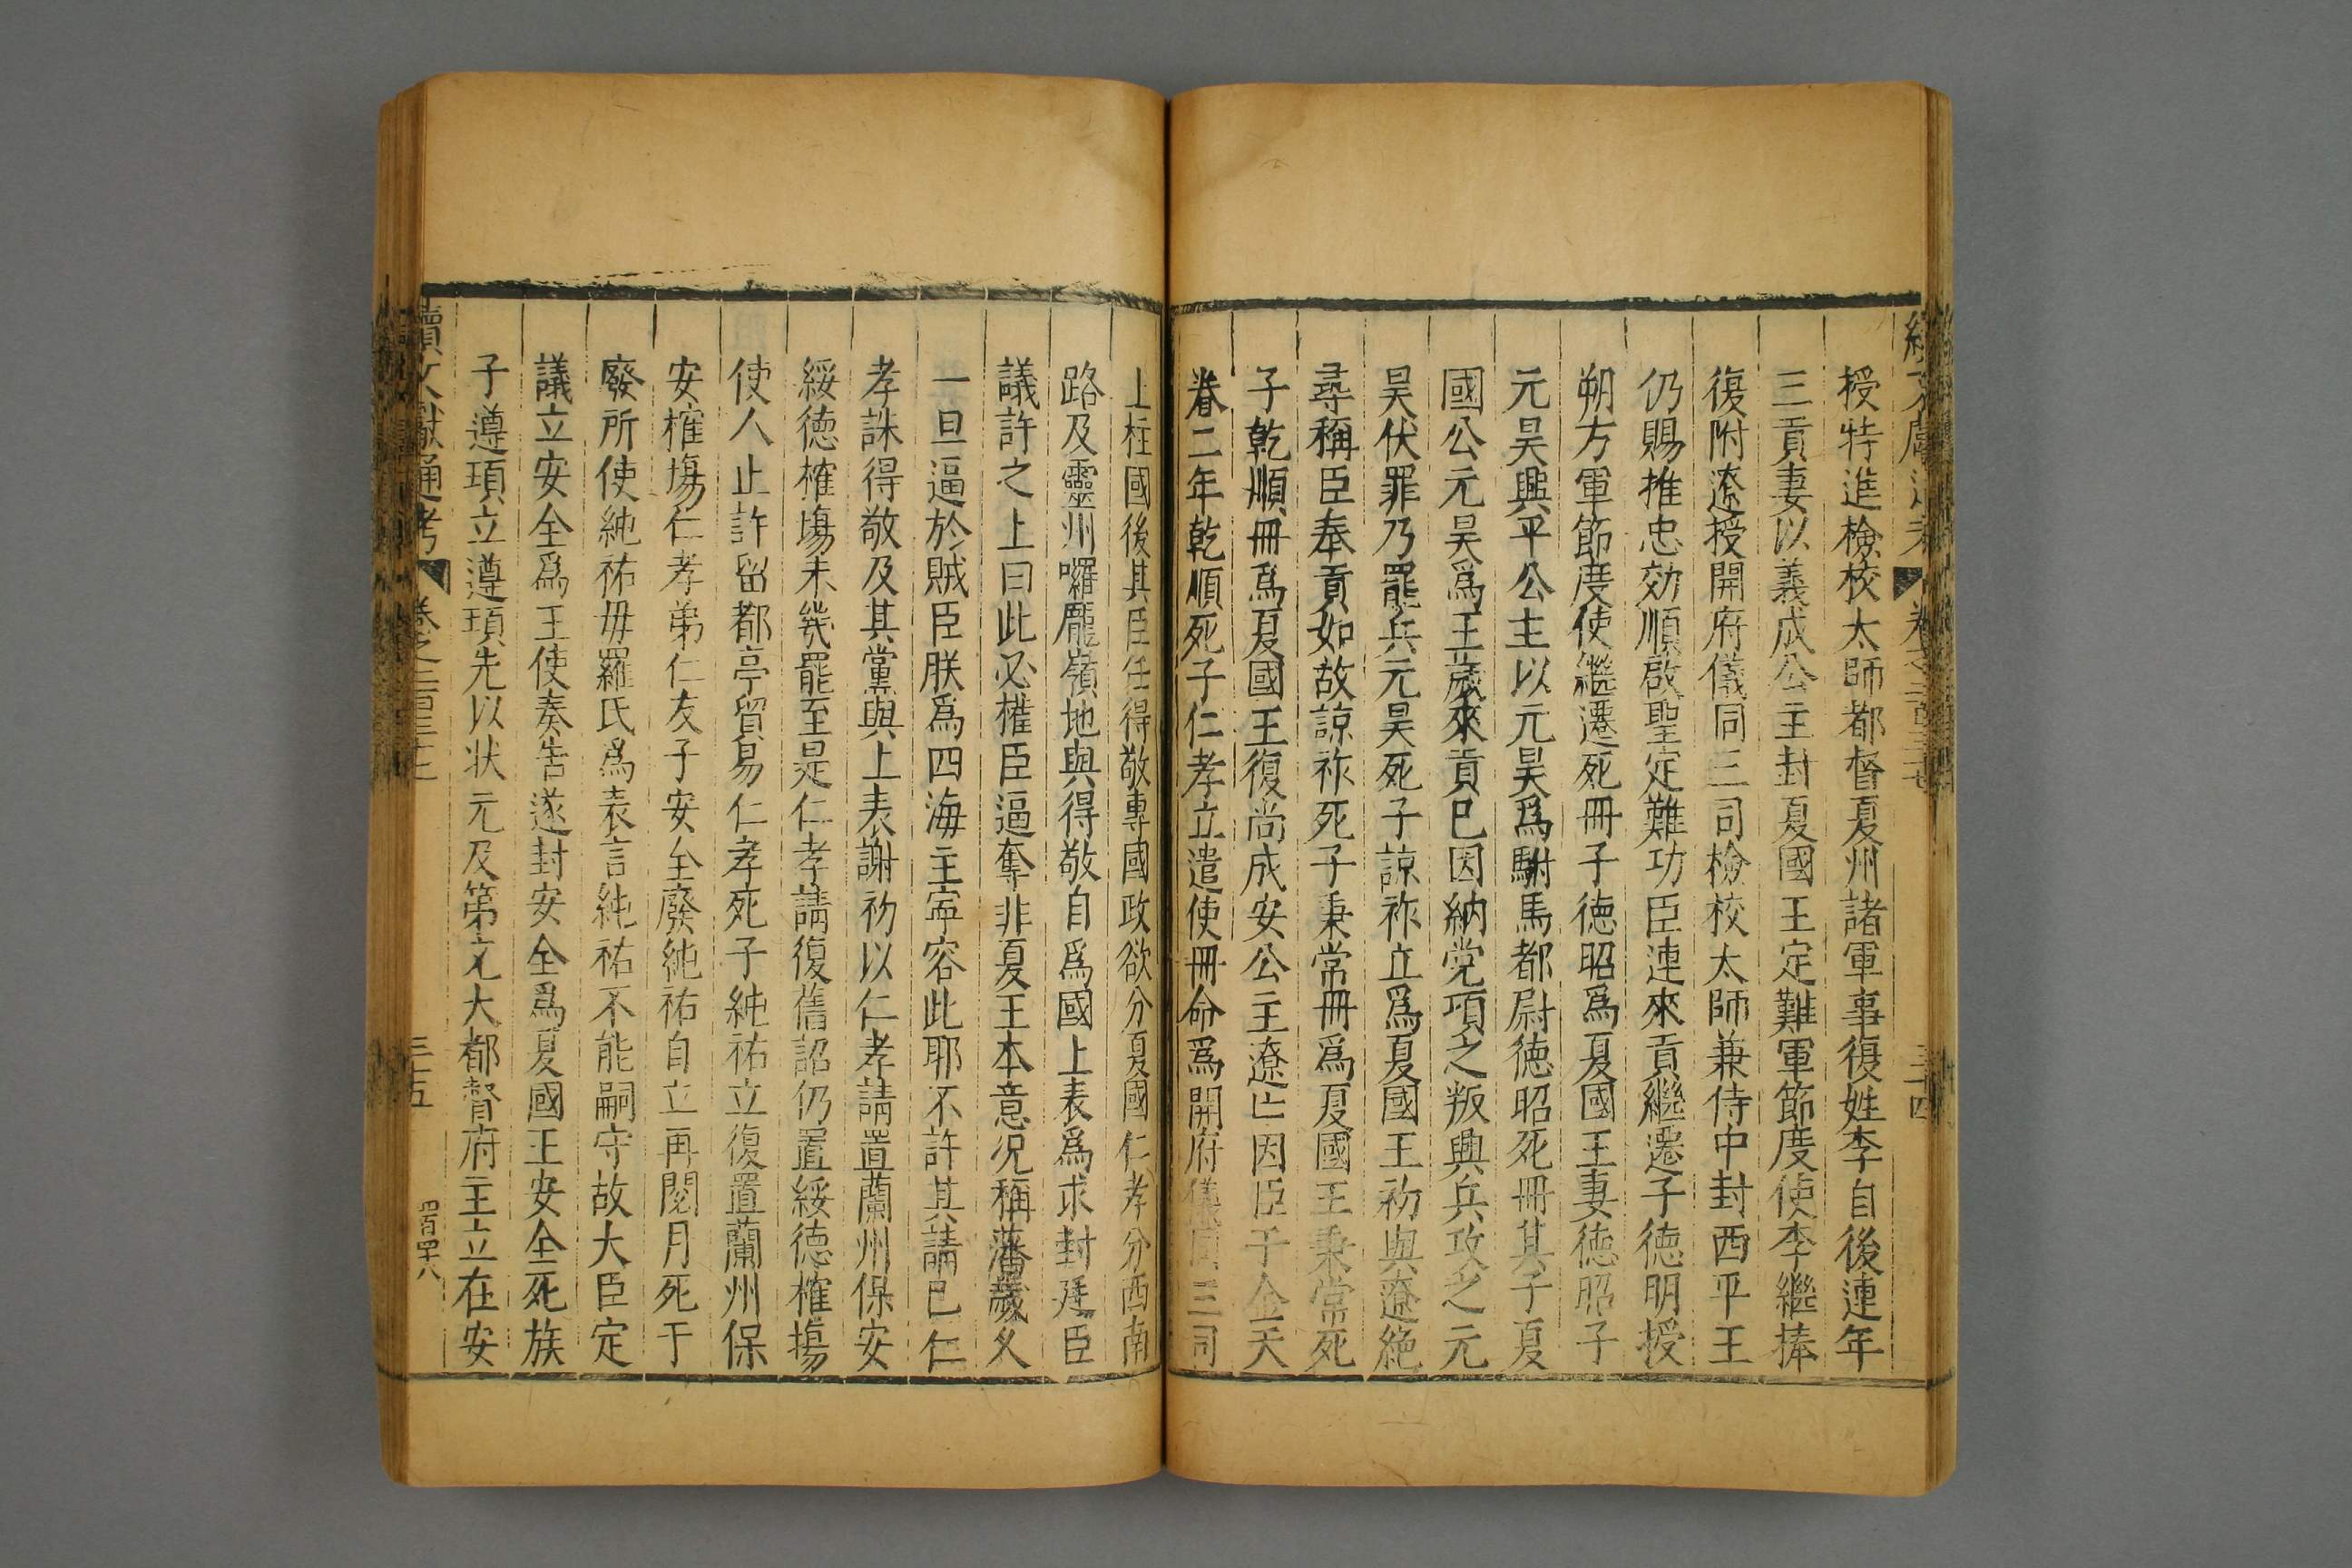 授特進檢校太師都督夏州諸軍事復姓李自後連年
三貢妻以義成公主封夏國王定難軍節度使李繼捧
復附遼授開府儀同三司檢校太師兼侍中封西平王
仍賜推忠効順啟聖定難功臣連來貢繼遷子德明授
朔方軍節度使繼遷死冊子德昭爲夏國王妻德昭子
元昊興平公主以元昊爲駙馬都尉德昭死冊其子夏
國公元昊爲王歲來貢巳因納党項之叛興兵攻之元
昊伏罪乃罷兵元昊死子諒祚立爲夏國王初與遼絶
尋稱臣奉貢如故諒祚死子秉常冊爲夏國王秉常死
子乾順冊爲夏國王復尚成安公主遼亡因臣于金天
眷二年乾順死子仁孝立遣使冊命爲開府儀同三司
上柱國後其臣任得敬專國政欲分夏國仁孝分西南
路及靈州囉龐嶺地與得敬自爲國上表爲求封廷臣
議許之上曰此必權臣逼奪非夏王本意况稱藩歲久
一旦逼於賊臣朕爲四海主寧容此耶不許其請巳仁
孝誅得敬及其黨與上表謝初以仁孝請置蘭州保安
綏德榷場未幾罷至是仁孝請復舊詔仍置綏德榷場
使人止許留都亭貿易仁孝死子純祐立復置蘭州保
安榷場仁孝弟仁友子安全廢純祐自立再閱月死于
廢所使純祐毋羅氏爲表言純祐不能嗣守故大臣定
議立安全爲王使奏告遂封安全爲夏國王安全死族
子遵頊立遵頊先以状元及第充大都督府主立在安
續文獻通考 卷之二百三十七 三十五 四百四十八